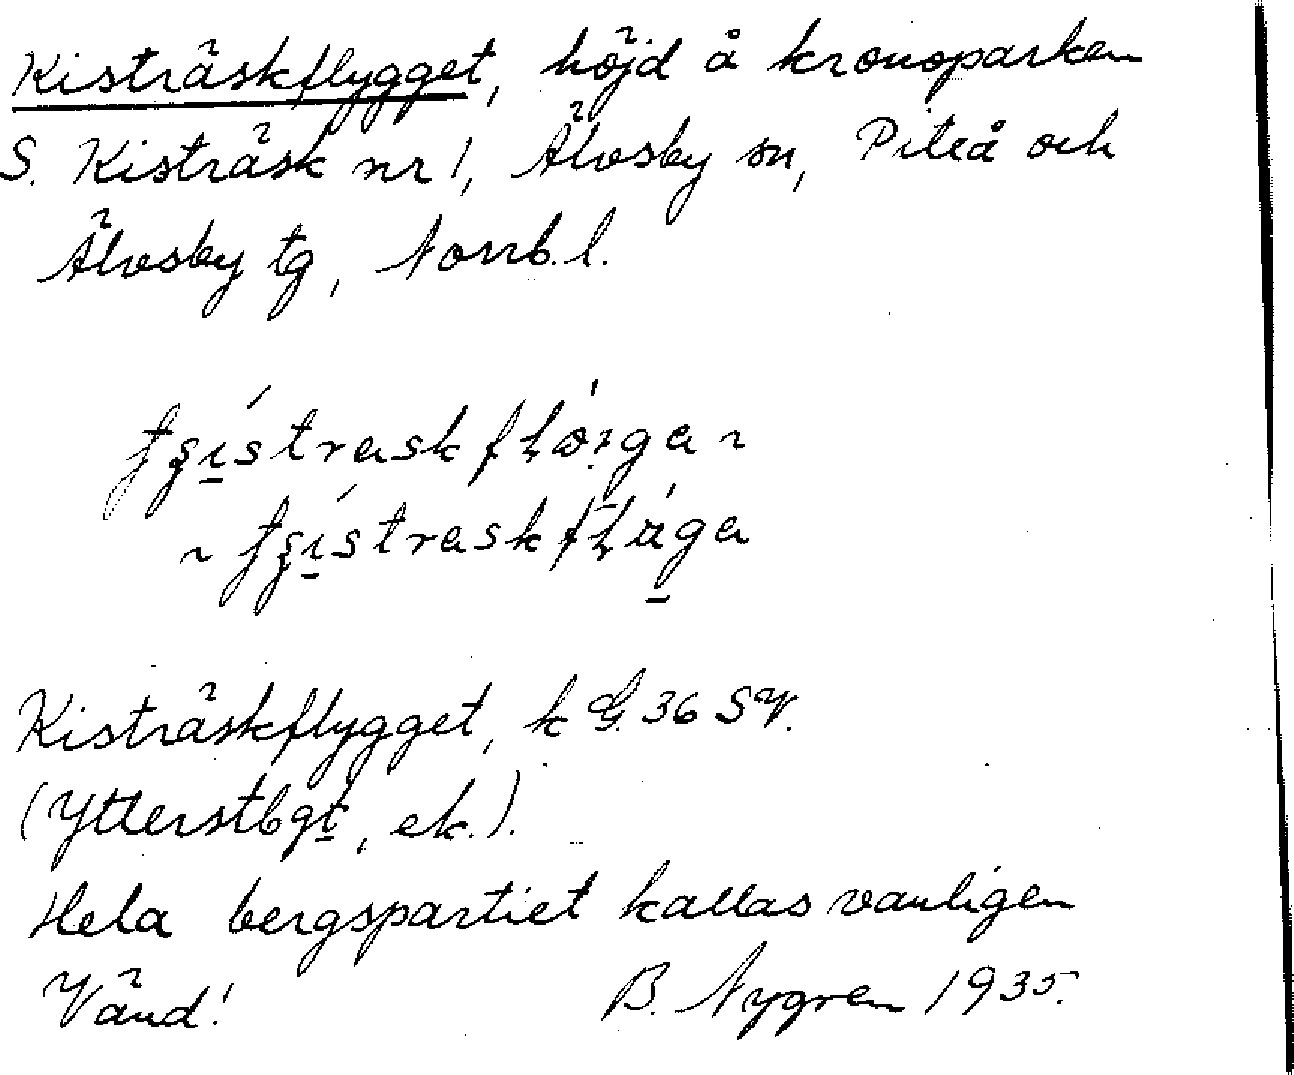 Kisträskflygget, höjd å kronoparken
S. Kisträsk nr 1, Älvsby sn, Piteå och
Älvsby tg, Norrb. l.
Kisträskflygget, k G. 36 SV.
(Ytterstbgt, ek.).
Hela bergspartiet kallas vanligen
Vänd! B. Nygren 1935.